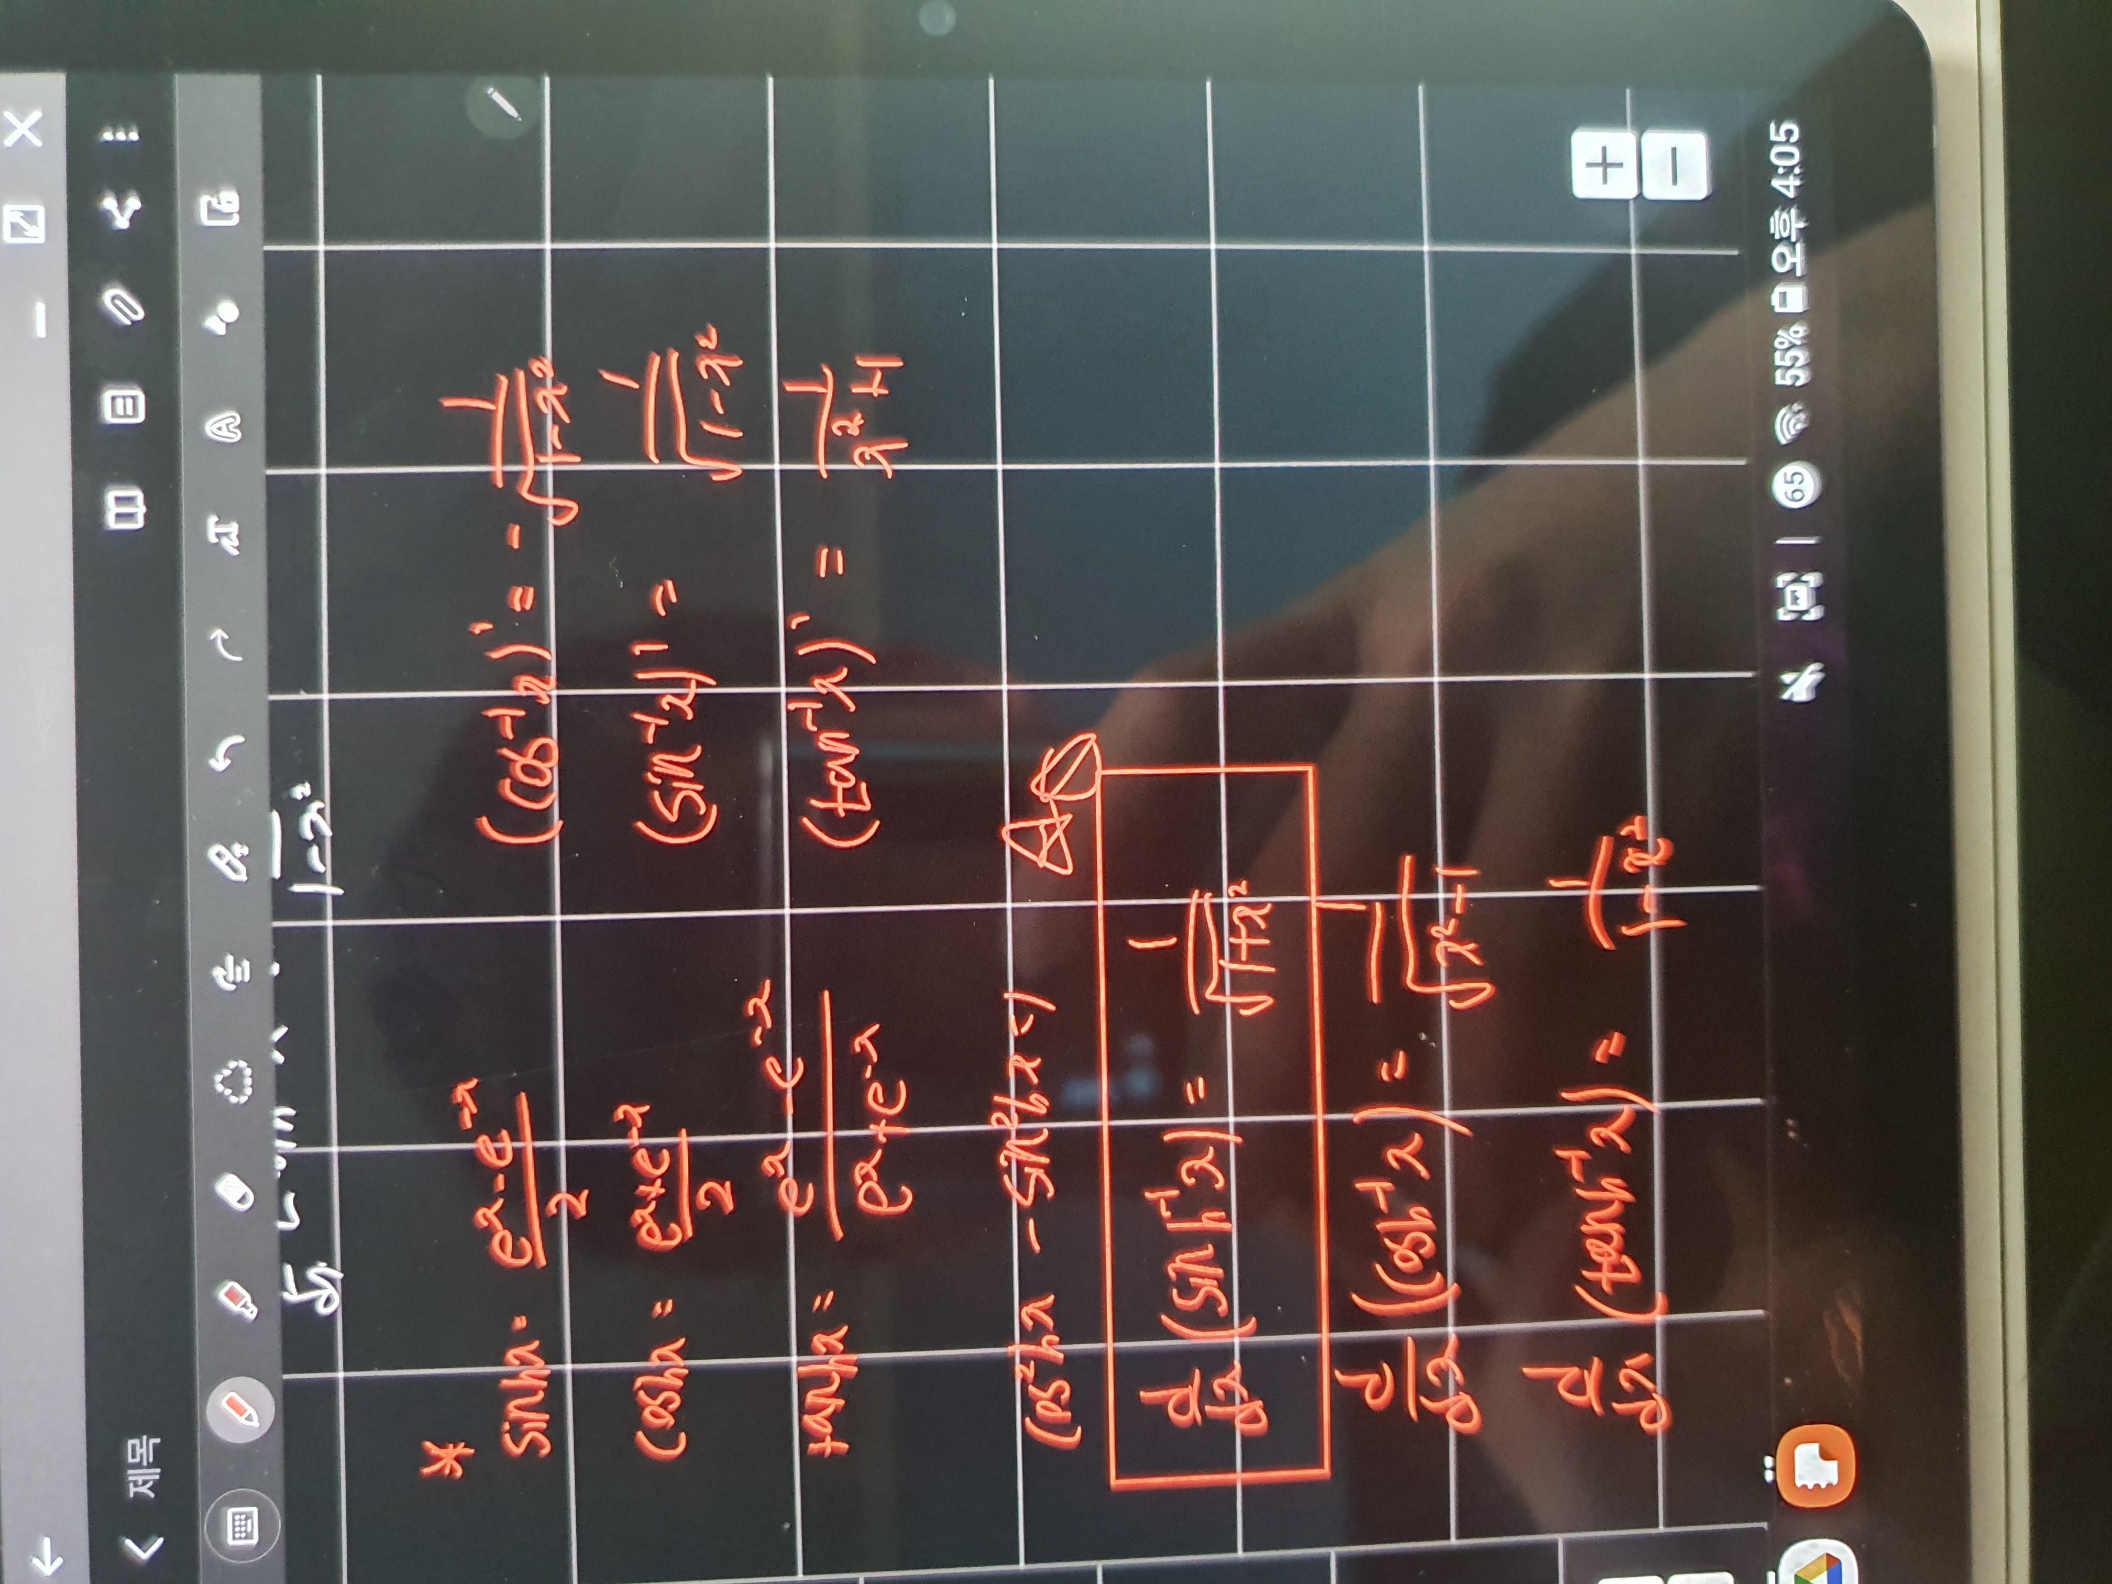 제목
1-x²
*
sinhx = (e^x - e^-x)/2
(cos⁻¹x)' = - 1/√(1-x²)
coshx = (e^x+e^-x)/2
(sin⁻¹x)' = 1/√(1-x²)
tanhx = (e^x - e^-x)/(e^x+e^-x)
(tan⁻¹x)' = 1/(x²+1)
cos²hx - sin²hx = 1
d/dx (sinh⁻¹x) = 1/√(1+x²)
d/dx (cosh⁻¹x) = 1/√(x²-1)
d/dx (tanh⁻¹x) = 1/(1-x²)
65 55% 오후 4:05